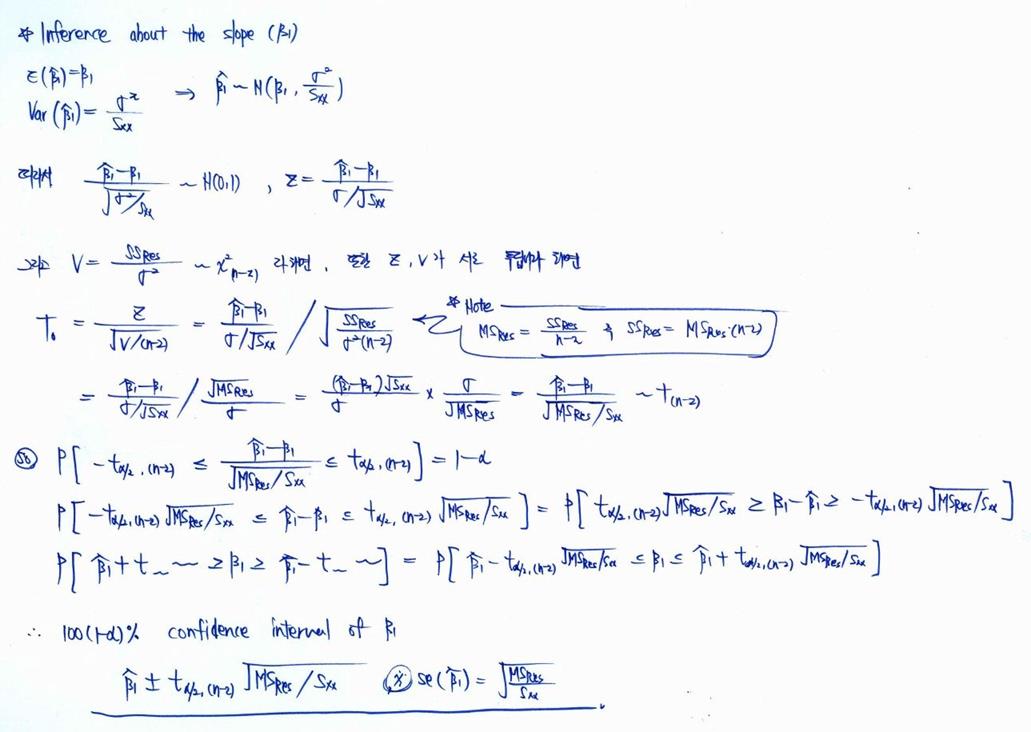 * Inference about the slope (β₁)
E(β̂₁)=β₁
Var(β̂₁)= σ²/Sxx ⇒ β̂₁ ~ N(β₁, σ²/Sxx)
따라서 (β̂₁-β₁)/√(σ²/Sxx) ~ N(0,1), Z= (β̂₁-β₁)/(σ/√Sxx)
그리고 V= SSRes/σ² ~ χ²(n-2) 라하면, 또한 Z, V가 서로 독립이라 하면
T₀ = Z/√(V/(n-2)) = (β̂₁-β₁)/(σ/√Sxx) / √(SSRes/(σ²(n-2)))
* Note
MSRes = SSRes/(n-2) → SSRes = MSRes·(n-2)
= (β̂₁-β₁)/(σ/√Sxx) / (√MSRes/σ) = ((β̂₁-β₁)√Sxx)/σ × σ/√MSRes = (β̂₁-β₁)/√(MSRes/Sxx) ~ t(n-2)
so P[-tα/2,(n-2) ≤ (β̂₁-β₁)/√(MSRes/Sxx) ≤ tα/2,(n-2)] = 1-α
P[-tα/2,(n-2) √(MSRes/Sxx) ≤ β̂₁-β₁ ≤ tα/2,(n-2) √(MSRes/Sxx)] = P[tα/2,(n-2) √(MSRes/Sxx) ≥ β₁-β̂₁ ≥ -tα/2,(n-2) √(MSRes/Sxx)]
P[β̂₁+t~ ~ ≥ β₁ ≥ β̂₁-t~ ~] = P[β̂₁-tα/2,(n-2) √(MSRes/Sxx) ≤ β₁ ≤ β̂₁+tα/2,(n-2) √(MSRes/Sxx)]
∴ 100(1-α)% confidence interval of β₁
β̂₁ ± tα/2,(n-2) √(MSRes/Sxx) ※ se(β̂₁) = √(MSRes/Sxx)